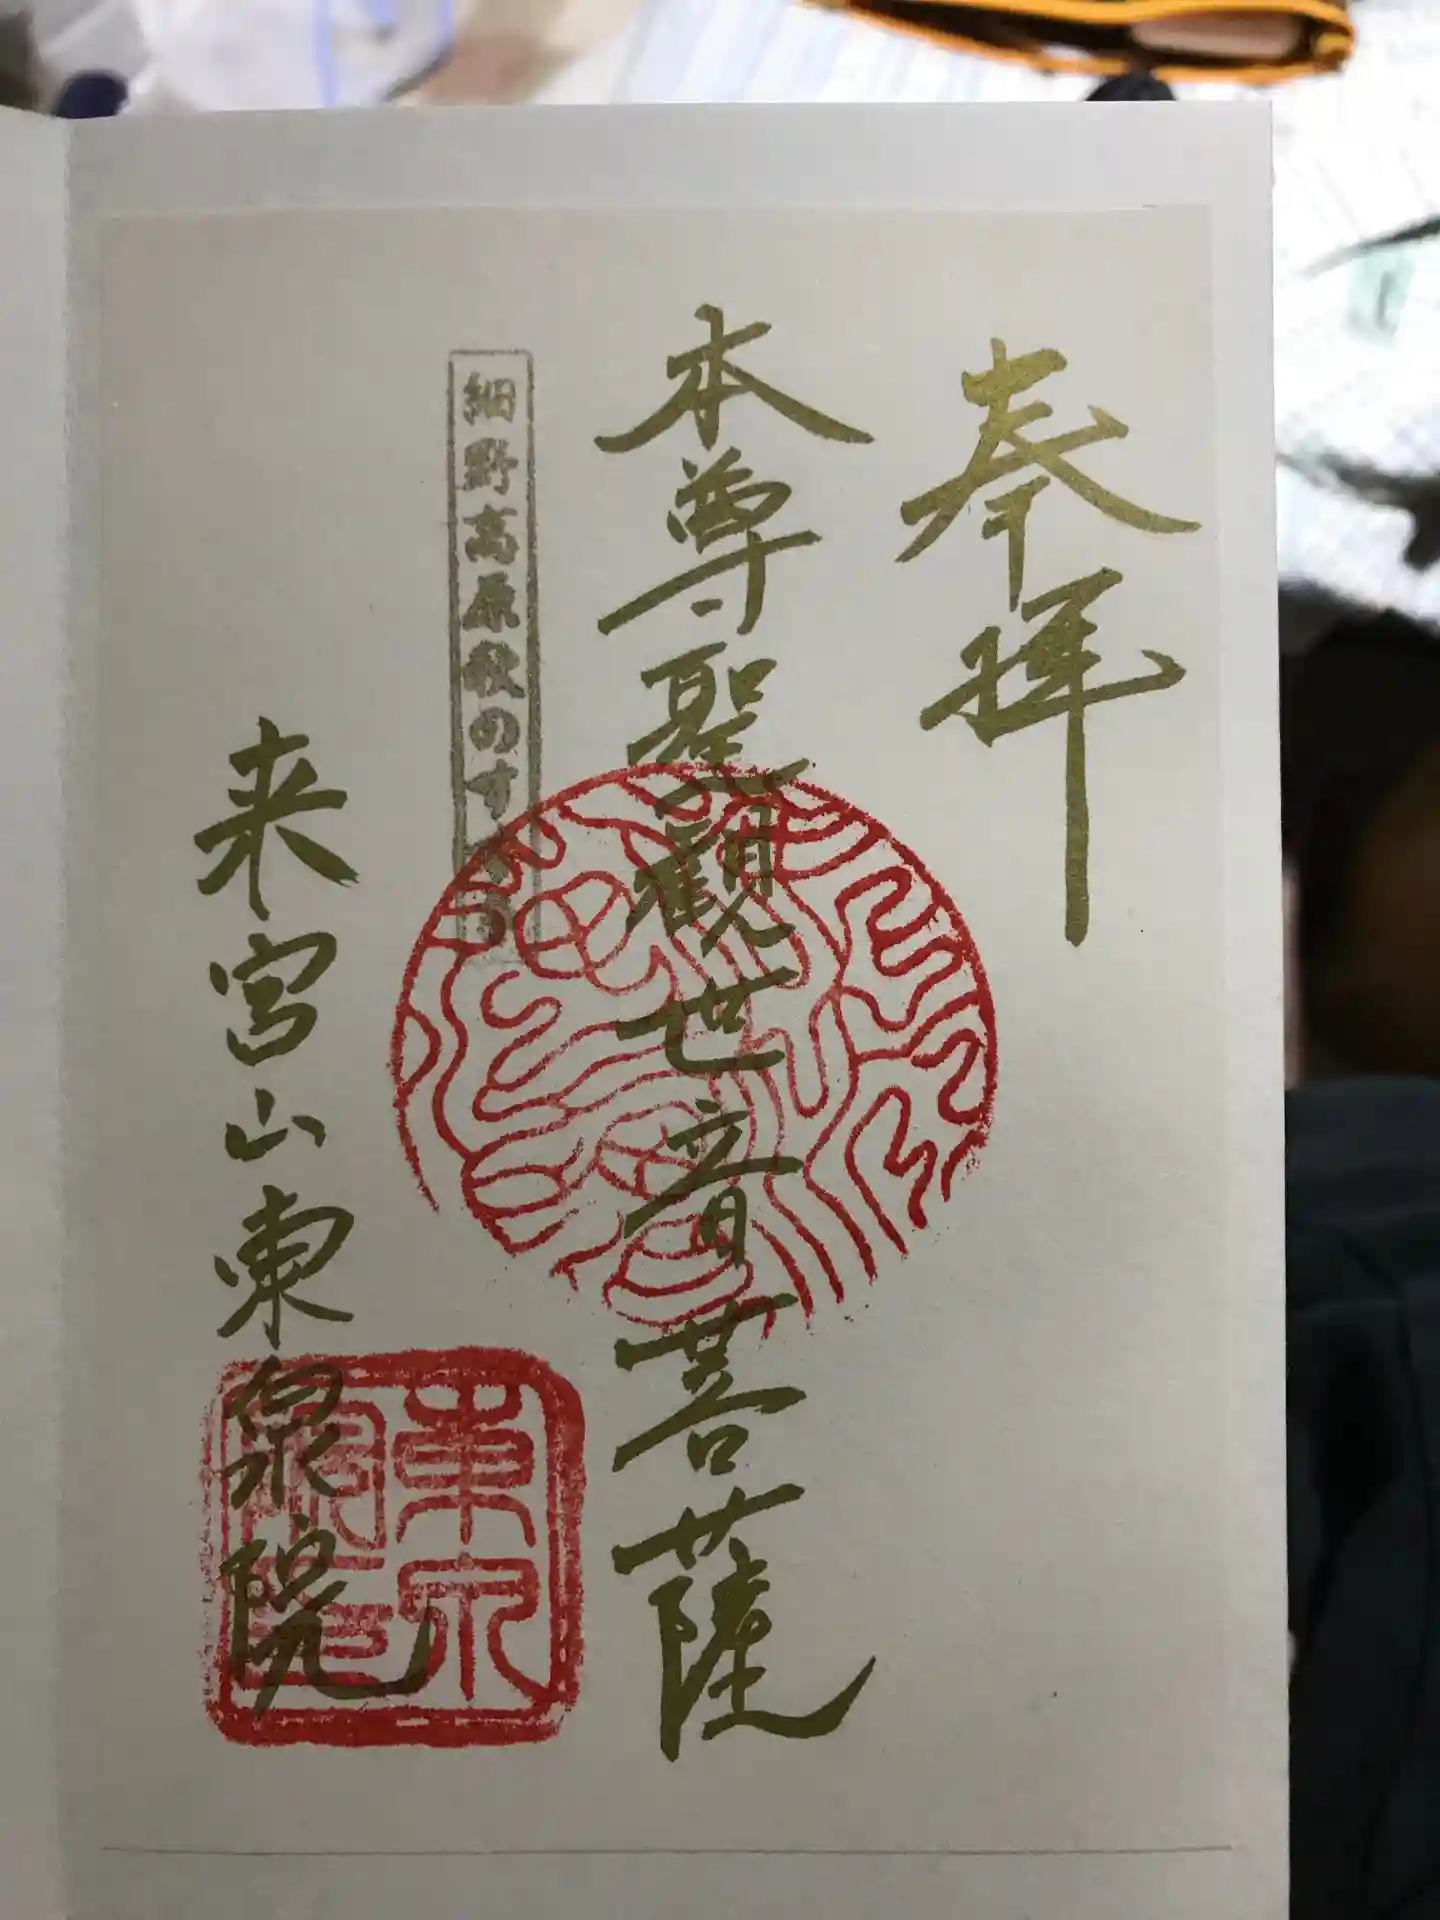 奉拝
本尊聖觀世音菩薩
細野高原秋のすすき
来宮山東泉院
東泉院